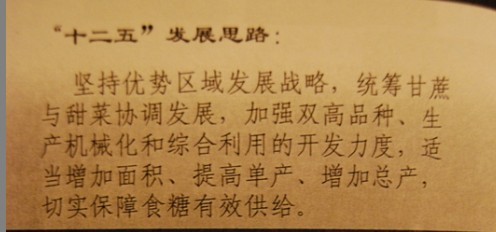 “十二五”发展思路：
坚持优势区域发展战略，统筹甘蔗
与甜菜协调发展，加强双高品种、生
产机械化和综合利用的开发力度，适
当增加面积、提高单产、增加总产，
切实保障食糖有效供给。